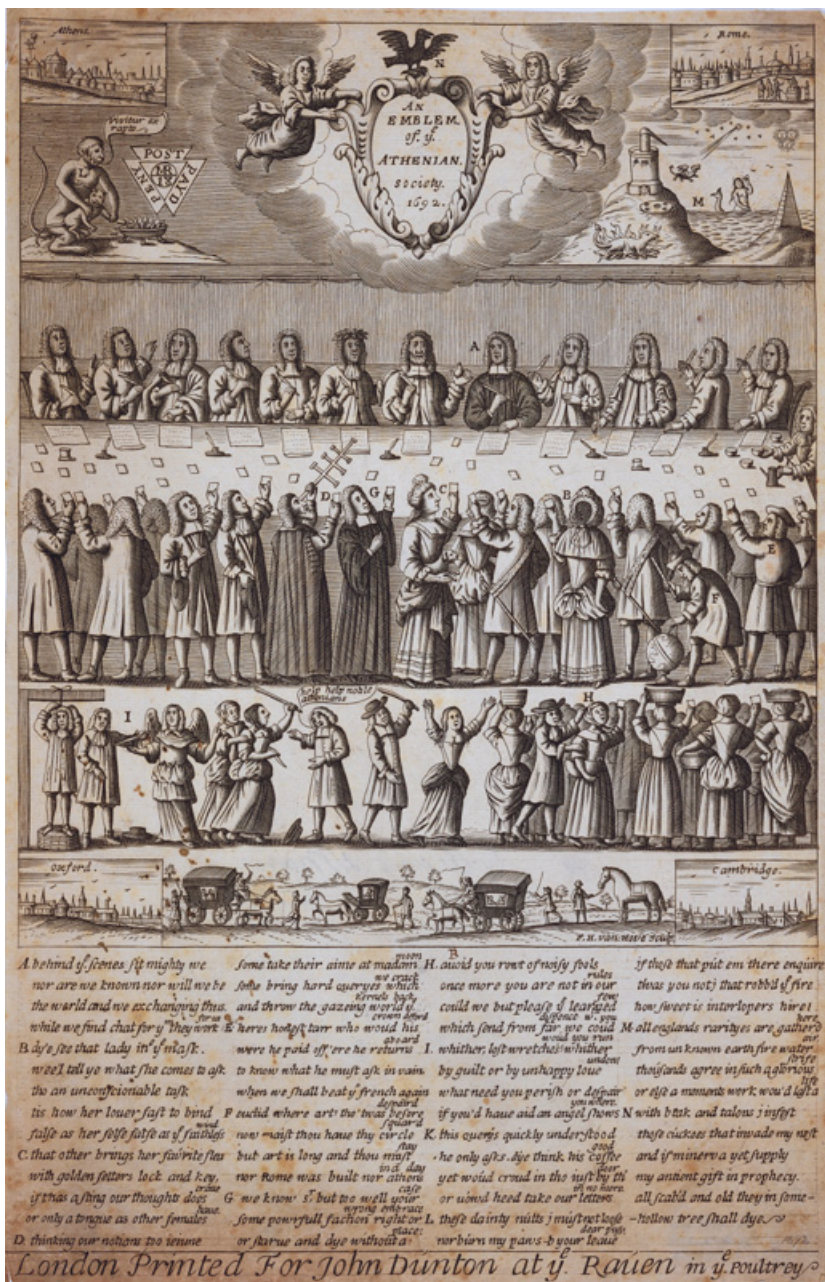 Athens.
Rome.
N
AN
EMBLEM
of yᵉ
ATHENIAN
Society.
1692.
vivitur ex
rapto
PENY POST PAID
M
A
D
G
C
B
E
F
help help noble
athenians
I
H
Oxford.
Cambridge.
F. H. van Hove Sculp.
A behind yᵉ scenes sit mighty we
nor are we known nor will we be
the world and we exchanging thus.
while we find chat for yᵐ they work
for us
B d'ye see that lady in yᵉ mask.
wee'l tell ye what she comes to ask
tho an unconscionable task
tis how her lover fast to bind
false as her selfe false as yᵉ faithless
wind
C that other brings her favrite flea
with golden fetters lock and key,
if it has a sting our thoughts does
crave
or only a tongue as other females
have.
D thinking our notions too jejune
some take their aime at madam
moon
some bring hard queryes which
we crack
and throw the gazeing world yᵉ
kernels back
E heres honest tarr who woud his
crown afford
were he paid off ere he returns
aboard
to know what he must ask in vain
when we shall beat yᵉ french again
F euclid where art thou twas before
despaird
now maist thou have thy circle
squar'd
but art is long and thou must
stay
nor Rome was built nor athens
in a day
G we know sʳ but too well your
case
some powerfull faction right or
wrong embrace
or starve and dye without a
place:
B
H avoid you rout of noisy fools
once more you are not in our
rules
could we but please yᵉ learned
few
which send from far we coud
dispence with you
I whither, lost wretches whither
woud you run
by guilt or by unhappy love
undone
what need you perish or despair
if you'd have aid an angel shows
you where.
K this querys quickly understood
he only asks d'ye think his coffee
good
yet woud croud in tho just by th'
door
or vowd heed take our letters
in no more
L these dainty nutts j must not loose
nor burn my paws by your leave
dear puss
if those that put em there enquire
twas you not j that robb'd yᵉ fire
how sweet is interlopers hire!
M all englands rarityes are gather'd
here.
from unknown earth fire water
air
thousands agree in such a glorious
strife
or else a moments work woud last a
life
N with beak and talons j infest
those cuckoes that invade my nest
and if minerva yet supply
my antient gift in prophecy.
all scab'd and old they in some
hollow tree shall dye
London Printed For John Dunton at yᵉ Raven in yᵉ Poultrey